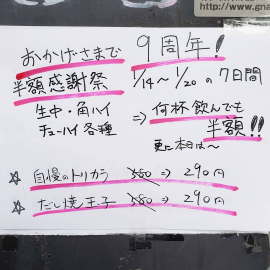 http://www.gna
おかげさまで 9周年!
半額感謝祭 1/14〜1/20の7日間
生中・角ハイ ⇒ 何杯飲んでも
チューハイ各種 半額!!
更に本日は〜
☆ 自慢のトリカラ 580 ⇒ 290円
☆ だし焼玉子 580 ⇒ 290円